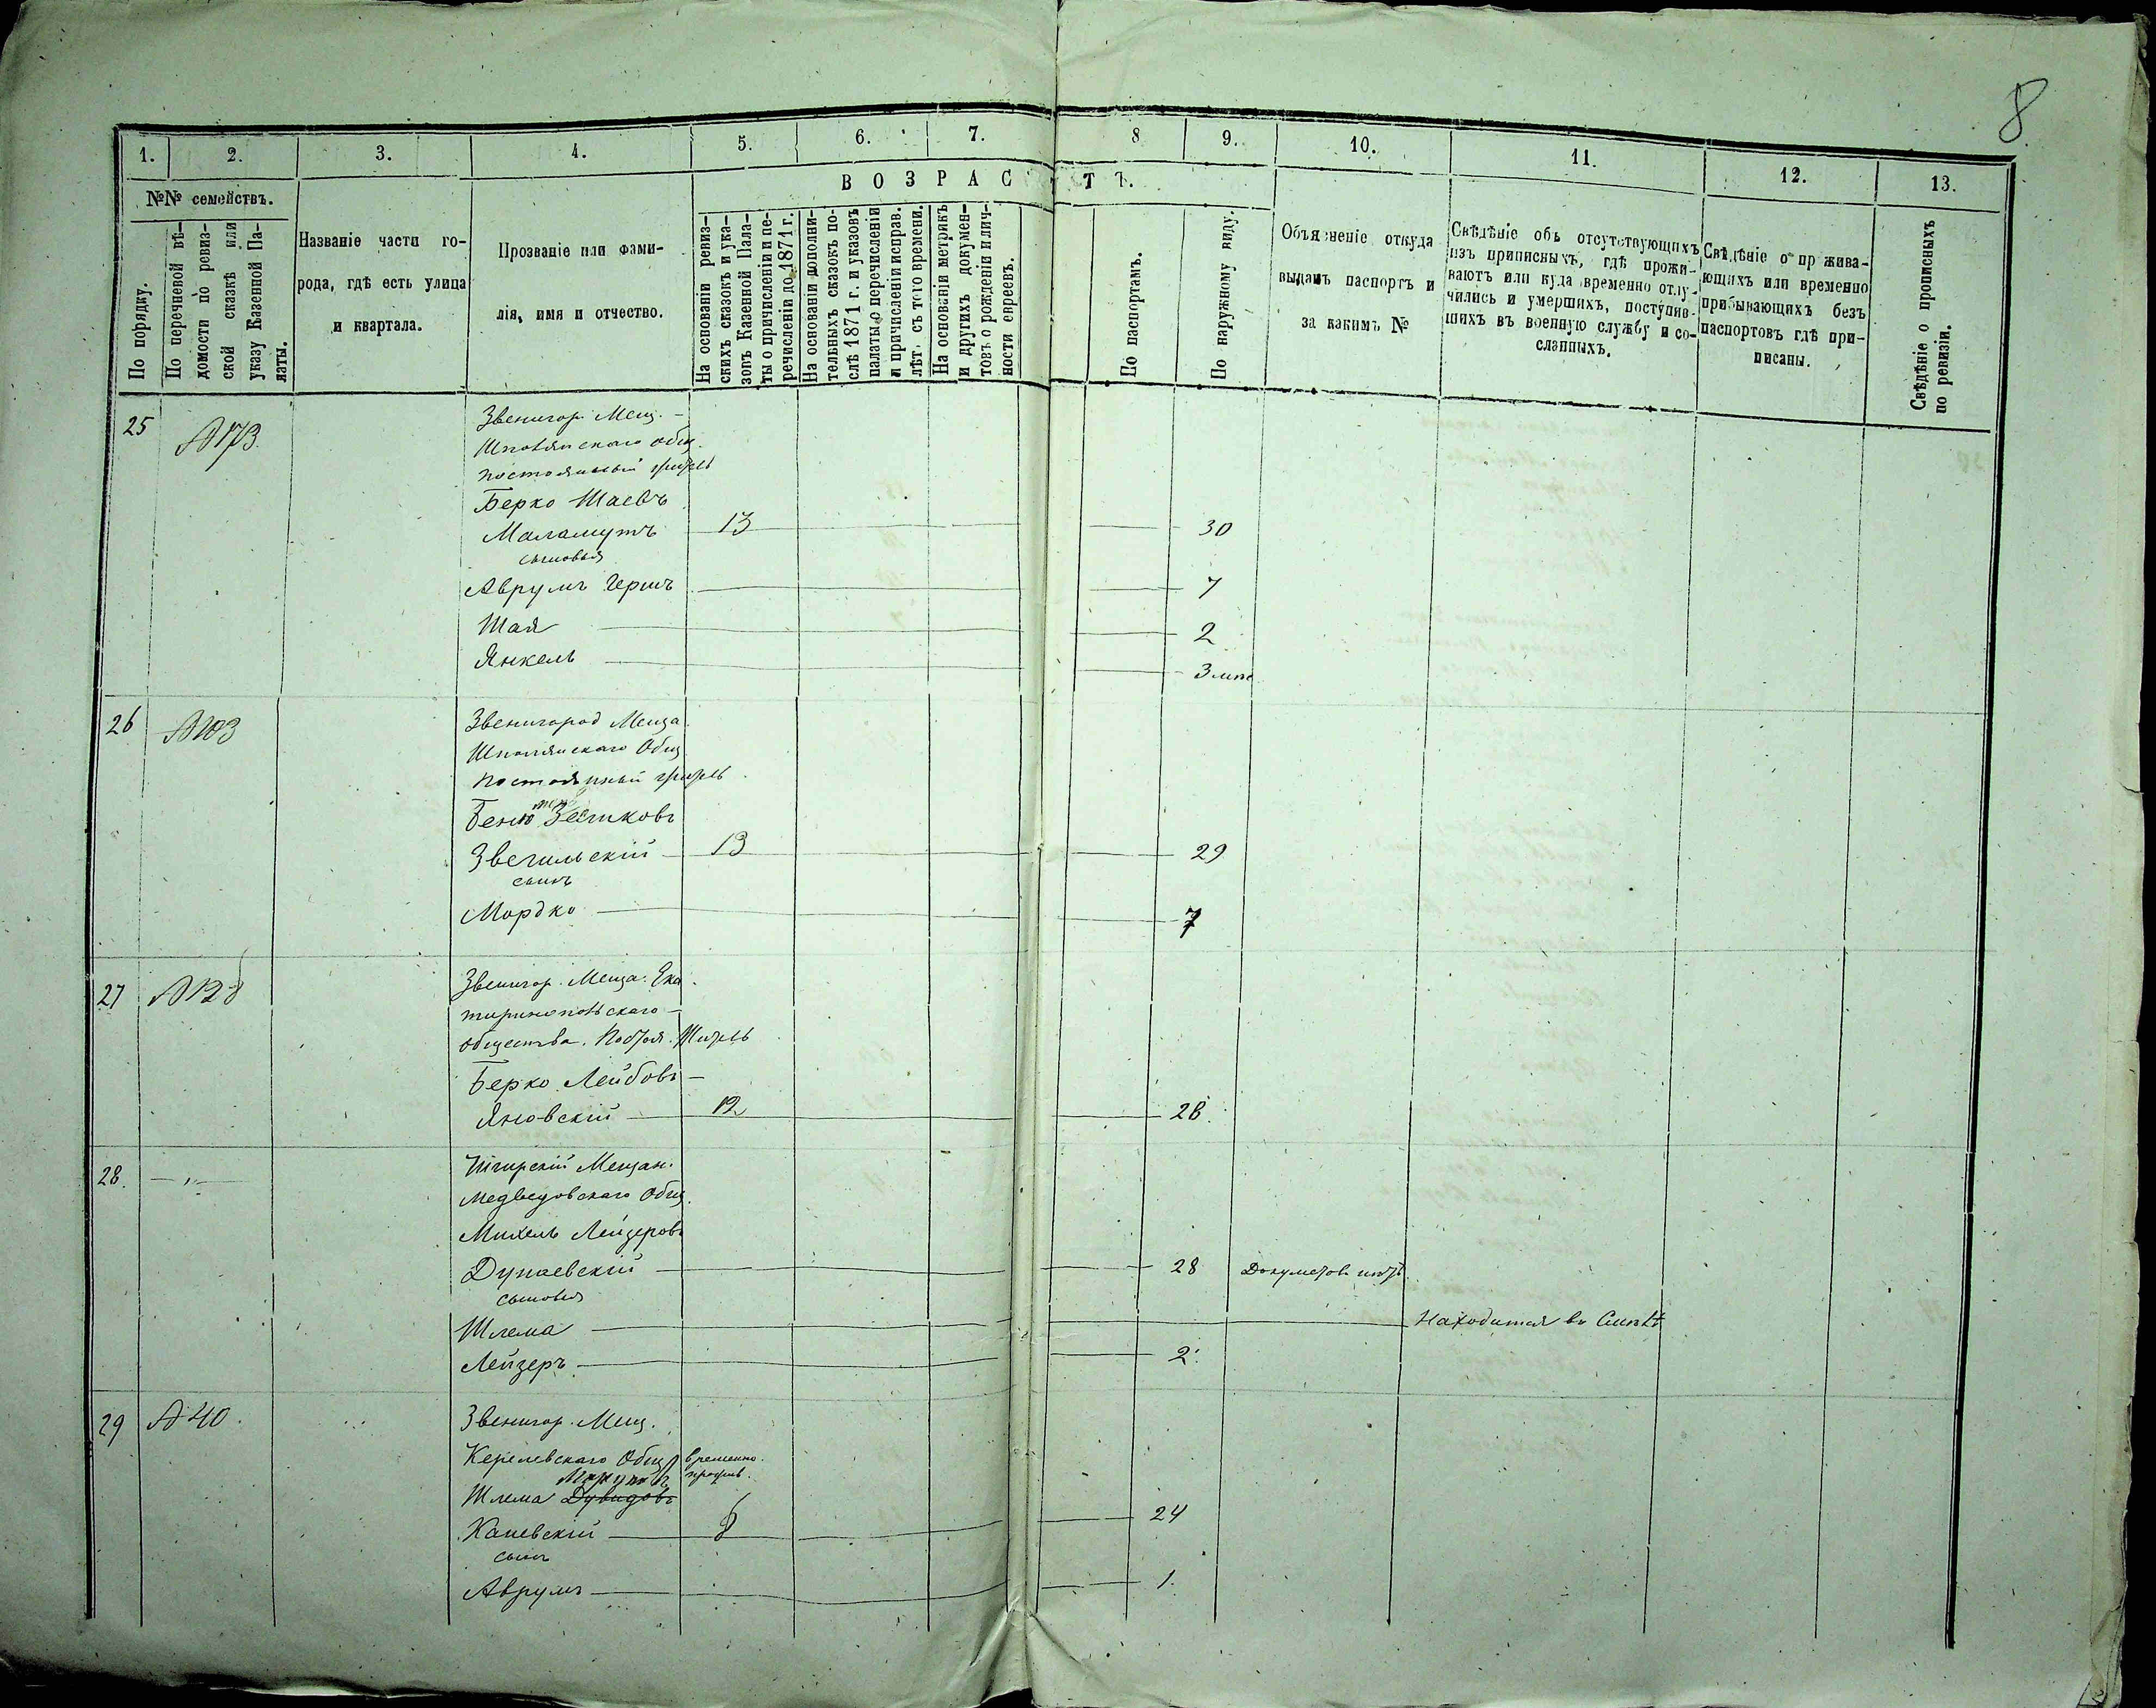 8
1. 2. 3. 4. 5. 6. 7. 8 9. 10. 11. 12. 13.
№№ семействъ.
ВОЗРАСТЪ.
По порядку.
По перечневой вѣ-
домости по ревиз-
ской сказкѣ или
указу Казенной Па-
латы.
Названіе части го-
рода, гдѣ есть улица
и квартала.
Прозваніе или фами-
лія, имя и отчество.
На основаніи ревиз-
скихъ сказокъ и ука-
зовъ Казенной Пала-
ты о причисленіи и пе-
речисленіи до 1871 г.
На основаніи дополни-
тельныхъ сказокъ по-
слѣ 1871 г. и указовъ
палаты о перечисленіи
и причисленіи исправ.
лѣт. съ того времени.
На основаніи метрикъ
и другихъ докумен-
товъ о рожденіи и лич-
ности евреевъ.
По паспортамъ.
По наружному виду.
Объясненіе откуда
выданъ паспортъ и
за какимъ №
Свѣдѣніе объ отсутствующихъ
изъ приписныхъ, гдѣ прожи-
ваютъ или куда временно отлу-
чились и умершихъ, поступив-
шихъ въ военную службу и со-
сланныхъ.
Свѣдѣніе о прожива-
ющихъ или временно
прибывающихъ безъ
паспортовъ гдѣ при-
писаны.
Свѣдѣніе о прописныхъ
по ревизіи.
25 №173. Звенигор. Мещ. –
Шполянскаго общ.
постоянный житель
Берко Шаевъ
Маламутъ 13 30
сыновья
Аврумъ Гершъ 7
Шая 2
Янкель 3 мѣс
26 №103 Звенигород Меща.
Шполянскаго Общ
постоянный житель.
Звегильскій 13 29
сынъ
Мордко 7
27 Звенигор. Меща. Ека
теринопольскаго –
общества. Постоя. Житель
Берко Лейбовъ –
Яновскій 12 28.
28. – „ – Чигирскій Мещан.
Медведовскаго Общ.
Михель Лейзеровъ
Дунаевскій 28 Документовъ нѣтъ.
сыновья
Шлема Находится въ
Лейзеръ 2.
29 №40. Звенигор. Мещ.
Керелевскаго Общ. временно.
прожив.
Шлема Дувидовъ
Каневскій 8 24
сынъ
Аврумъ 1.